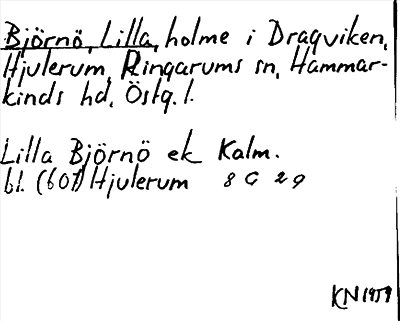 Björnö, Lilla, holme i Dragviken,
Hjulerum, Ringarums sn, Hammar-
kinds hd, Östg. l.
Lilla Björnö ek Kalm.
bl. (607) Hjulerum 8 G 2 g
KN 1959